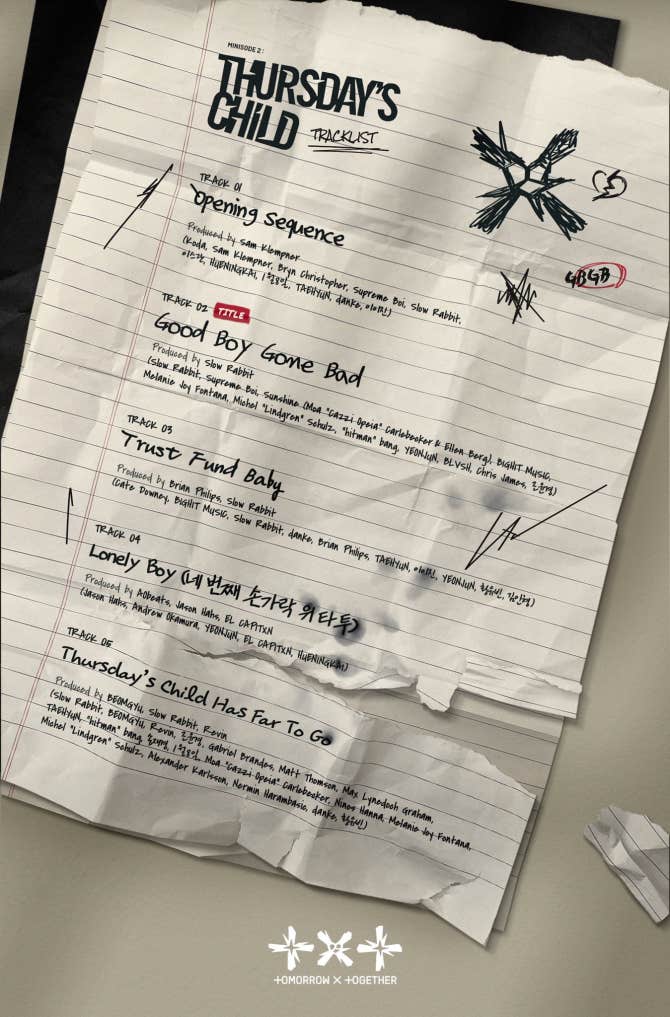 MINISODE 2:
THURSDAY'S
CHILD
TRACKLIST
GBGB
TRACK 01
Opening Sequence
Produced by Sam Klempner
(Koda, Sam Klempner, Bryn Christopher, Supreme Boi, Slow Rabbit,
이스란, HUENINGKAI, 1월8일, TAEHYUN, danke, 이이진)
TRACK 02 TITLE
Good Boy Gone Bad
Produced by Slow Rabbit
(Slow Rabbit, Supreme Boi, Sunshine (Moa "Cazzi Opeia" Carlebecker & Ellen Berg), BIGHIT MUSIC,
Melanie Joy Fontana, Michel "Lindgren" Schulz, "hitman" bang, YEONJUN, BLVSH, Chris James, 조윤경)
TRACK 03
Trust Fund Baby
Produced by Brian Philips, Slow Rabbit
(Cate Downey, BIGHIT MUSIC, Slow Rabbit, danke, Brian Philips, TAEHYUN, 이이진, YEONJUN, 황유빈, 김인형)
TRACK 04
Lonely Boy (네 번째 손가락 위 타투)
Produced by AObeats, Jason Hahs, EL CAPITXN
(Jason Hahs, Andrew Okamura, YEONJUN, EL CAPITXN, HUENINGKAI)
TRACK 05
Thursday's Child Has Far To Go
Produced by BEOMGYU, Slow Rabbit, Revin
(Slow Rabbit, BEOMGYU, Revin, 조윤경, Gabriel Brandes, Matt Thomson, Max Lynedoch Graham,
TAEHYUN, "hitman" bang, 1월8일, Moa "Cazzi Opeia" Carlebecker, Ninos Hanna, Melanie Joy Fontana,
Michel "Lindgren" Schulz, Alexander Karlsson, Nermin Harambasic, danke, 황유빈)
TOMORROW X TOGETHER